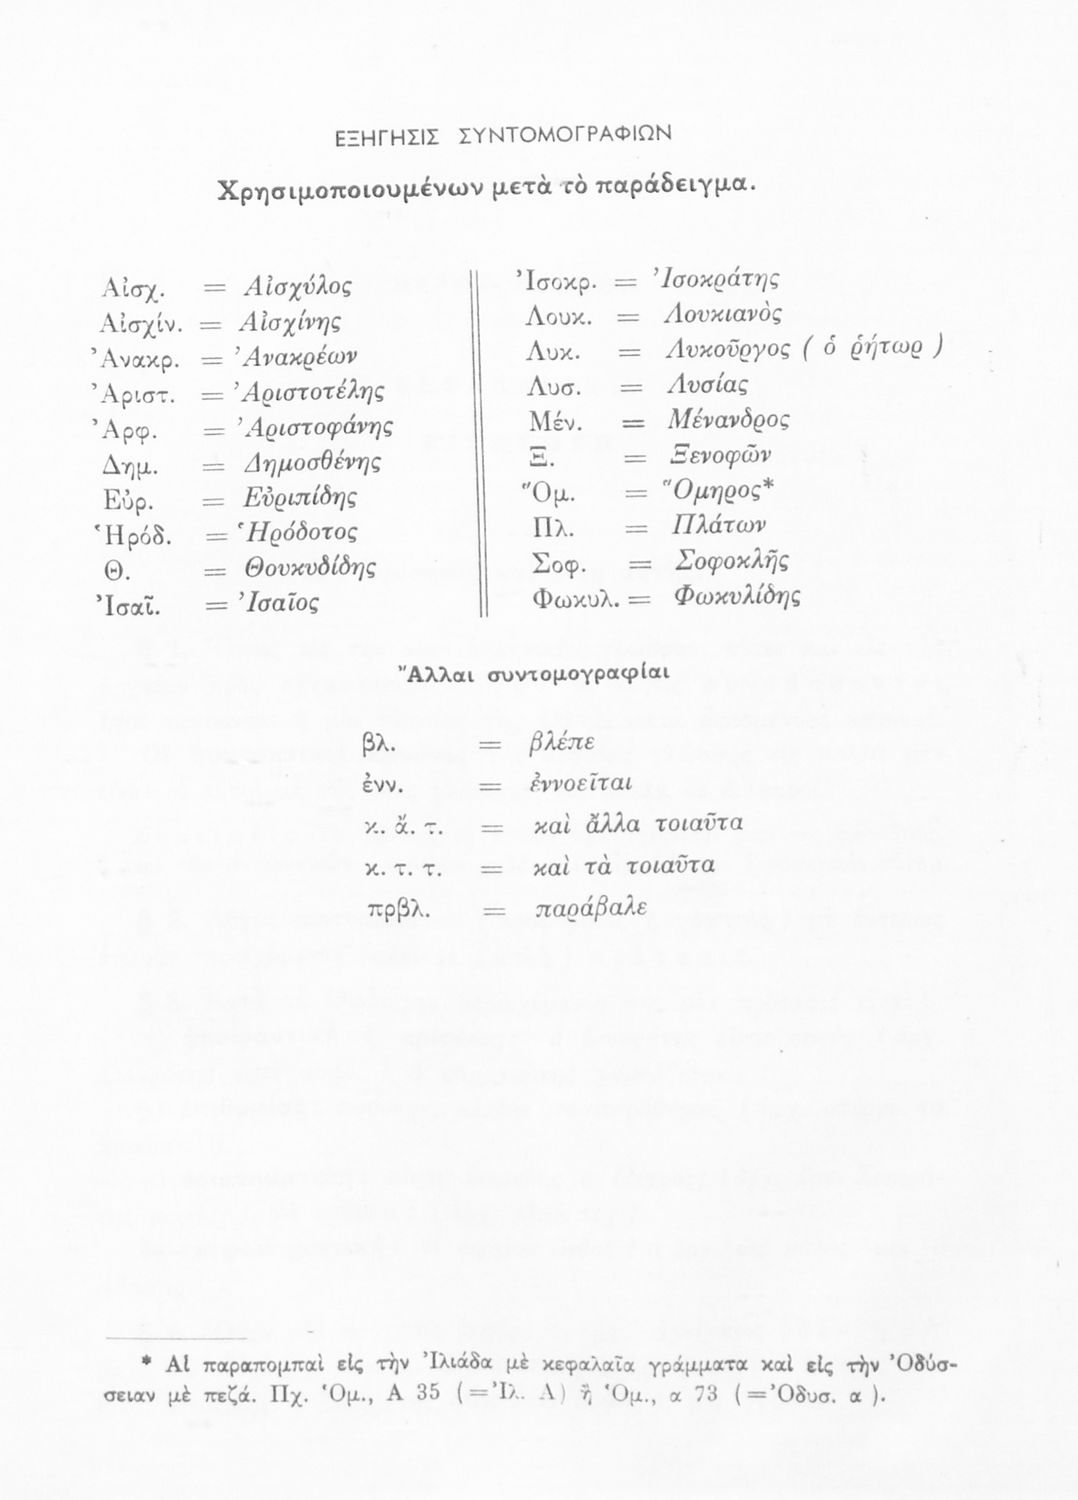 ΕΞΗΓΗΣΙΣ ΣΥΝΤΟΜΟΓΡΑΦΙΩΝ
Χρησιμοποιουμένων μετὰ τὸ παράδειγμα.
Αἰσχ. = Αἰσχύλος
Αἰσχίν. = Αἰσχίνης
Ἀνακρ. = Ἀνακρέων
Ἀριστ. = Ἀριστοτέλης
Ἀρφ. = Ἀριστοφάνης
Δημ. = Δημοσθένης
Εὐρ. = Εὐριπίδης
Ἡρόδ. = Ἡρόδοτος
Θ. = Θουκυδίδης
Ἰσαῖ. = Ἰσαῖος
Ἰσοκρ. = Ἰσοκράτης
Λουκ. = Λουκιανὸς
Λυκ. = Λυκοῦργος ( ὁ ῥήτωρ )
Λυσ. = Λυσίας
Μέν. = Μένανδρος
Ξ. = Ξενοφῶν
Ὅμ. = Ὅμηρος*
Πλ. = Πλάτων
Σοφ. = Σοφοκλῆς
Φωκυλ. = Φωκυλίδης
Ἄλλαι συντομογραφίαι
βλ. = βλέπε
ἐνν. = ἐννοεῖται
κ. ἄ. τ. = καὶ ἄλλα τοιαῦτα
κ. τ. τ. = καὶ τὰ τοιαῦτα
πρβλ. = παράβαλε
* Αἱ παραπομπαὶ εἰς τὴν Ἰλιάδα μὲ κεφαλαῖα γράμματα καὶ εἰς τὴν Ὀδύσ-
σειαν μὲ πεζά. Πχ. Ὁμ., Α 35 (=Ἰλ. Α) ἢ Ὁμ., α 73 (=Ὀδυσ. α ).